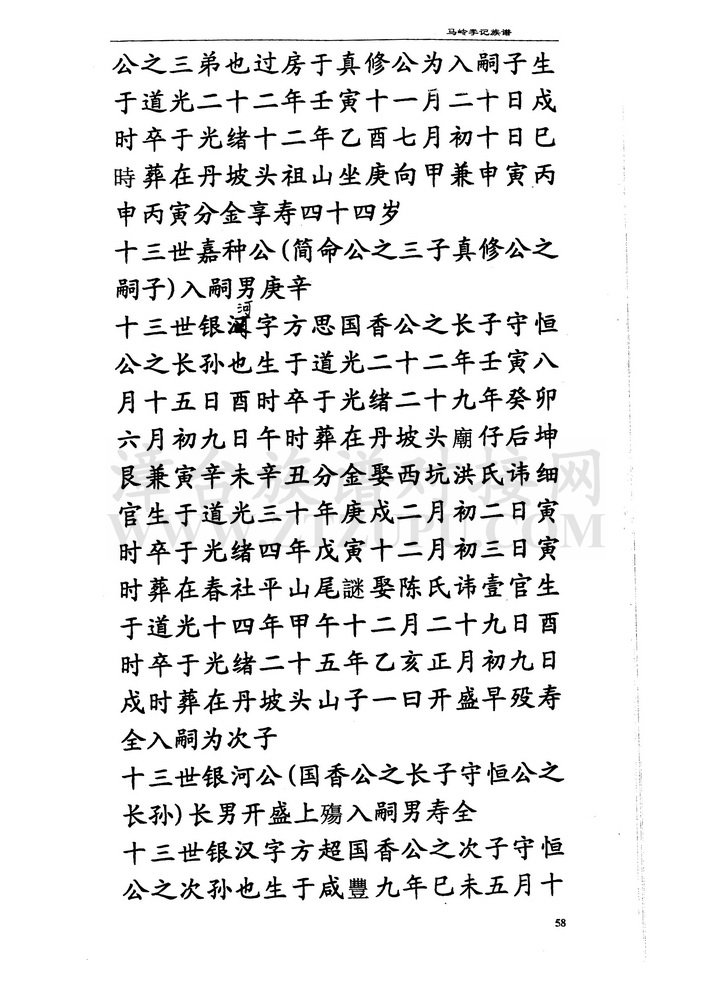 马岭李记族谱
公之三弟也过房于真修公为入嗣子生
于道光二十二年壬寅十一月二十日戍
时卒于光绪十二年乙酉七月初十日巳
時葬在丹坡头祖山坐庚向甲兼申寅丙
申丙寅分金享寿四十四岁
十三世嘉种公(简命公之三子真修公之
嗣子)入嗣男庚辛
河
十三世银字方思国香公之长子守恒
公之长孙也生于道光二十二年壬寅八
月十五日酉时卒于光绪二十九年癸卯
六月初九日午时葬在丹坡头廟仔后坤
艮兼寅辛未辛丑分金娶西坑洪氏讳细
官生于道光三十年庚戍二月初二日寅
时卒于光绪四年戊寅十二月初三日寅
时葬在春社平山尾謎娶陈氏讳壹官生
于道光十四年甲午十二月二十九日酉
时卒于光绪二十五年乙亥正月初九日
戍时葬在丹坡头山子一曰开盛早殁寿
全入嗣为次子
十三世银河公(国香公之长子守恒公之
长孙)长男开盛上殤入嗣男寿全
十三世银汉字方超国香公之次子守恒
公之次孙也生于咸豐九年巳未五月十
漳台族谱对接网
WWW.ZTZUPU.COM
58